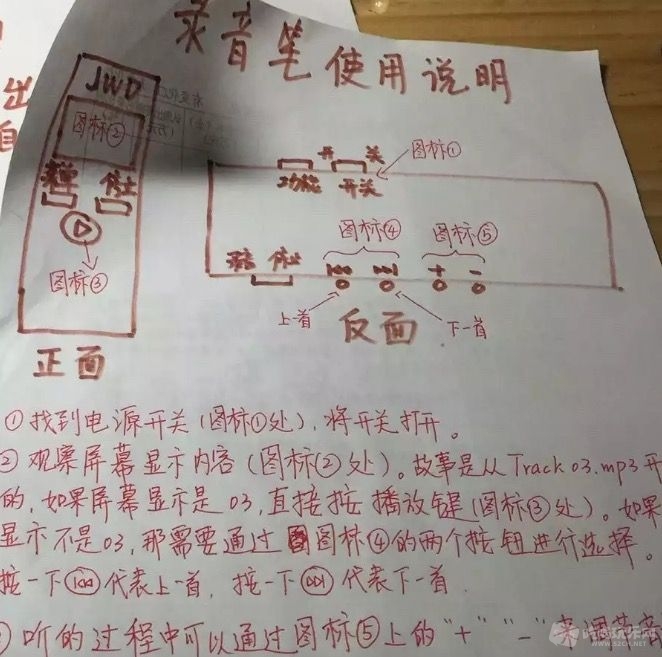 录音笔使用说明
出
自
JWD
图标②
停止
图标③
正面
开 关
图标①
功能 开关
图标④ 图标⑤
停止
+ -
上一首 下一首
反面
①找到电源开关(图标①处),将开关打开。
②观察屏幕显示内容(图标②处)。故事是从Track 03.mp3开
的,如果屏幕显示是03,直接按播放键(图标③处)。如果
显示不是03,那需要通过图标④的两个按钮进行选择。
按一下⏮代表上一首,按一下⏭代表下一首
听的过程中可以通过图标⑤上的"+""-"来调节音